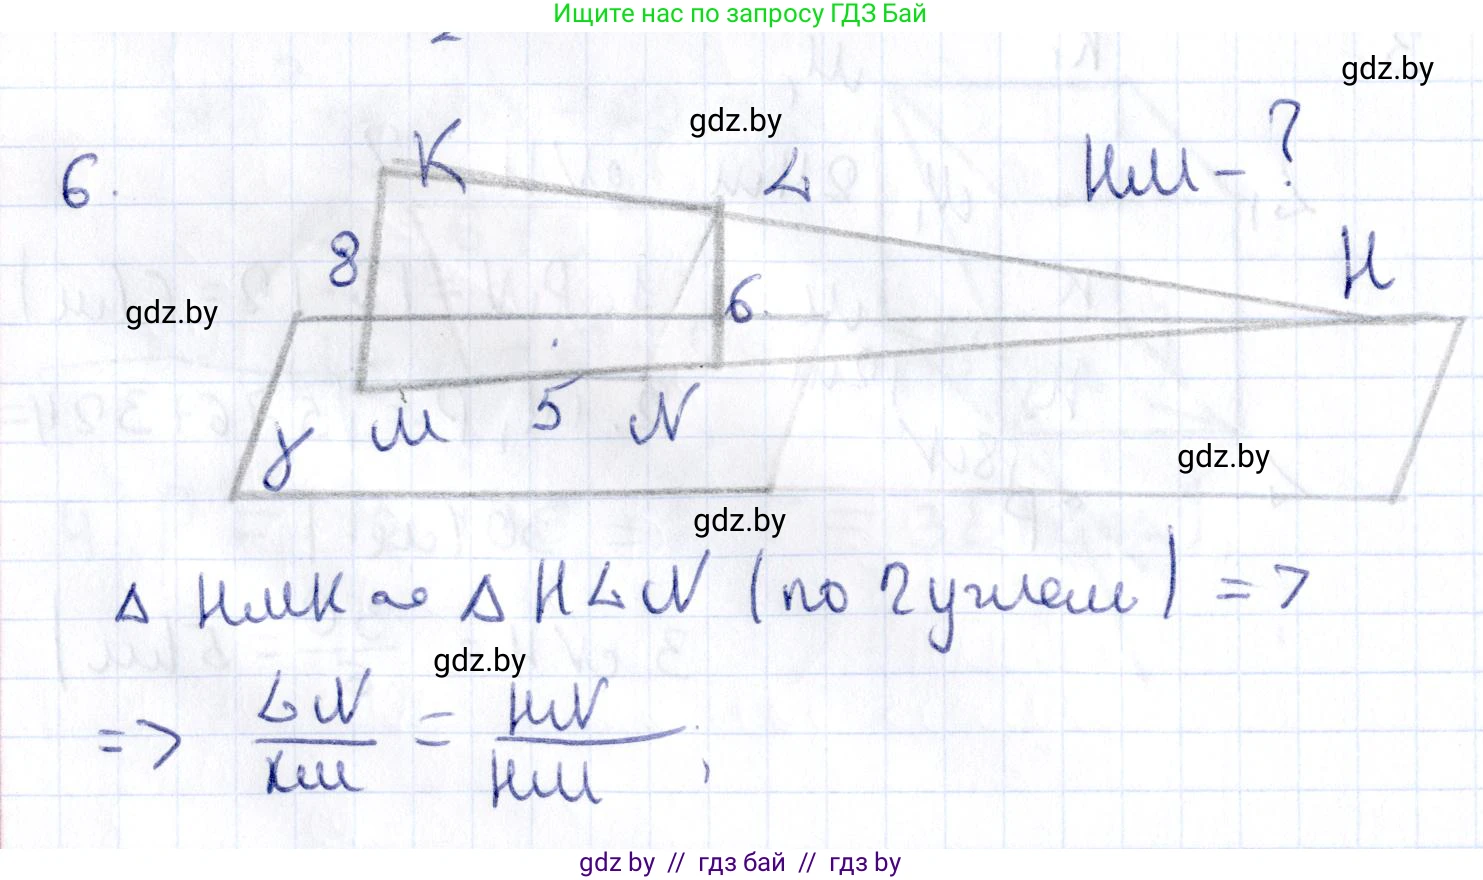 Ищите нас по запросу ГДЗ Бай
gdz.by
gdz.by
6.
K
L
HM - ?
8
H
gdz.by
6
γ
M
5
N
gdz.by
gdz.by
Δ HMK ~ Δ HLN (по 2 углам) =>
gdz.by
=> LN/KM = HN/HM ;
gdz by // гдз бай // гдз by